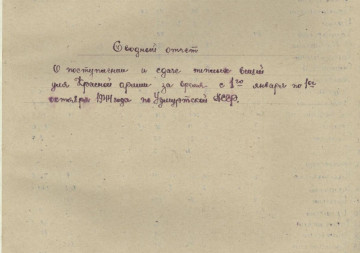 Сводный отчет
О поступлении и сдаче теплых вещей
для Красной армии за время с 1го января по 1ое
октября 1944 года по Удмуртской АССР.